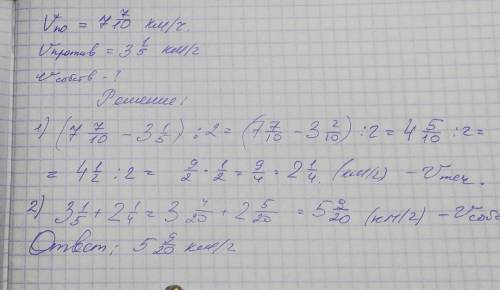 Vпо = 7 7/10 км/ч.
Vпротив = 3 1/5 км/г
Vсобств - ?
Решение:
1) (7 7/10 - 3 1/5) : 2 = (7 7/10 - 3 2/10) : 2 = 4 5/10 : 2 =
= 4 1/2 : 2 = 9/2 · 1/2 = 9/4 = 2 1/4. (км/г) - Vтеч.
2) 3 1/5 + 2 1/4 = 3 4/20 + 2 5/20 = 5 9/20 (км/г) - Vсобс
Ответ: 5 9/20 км/г